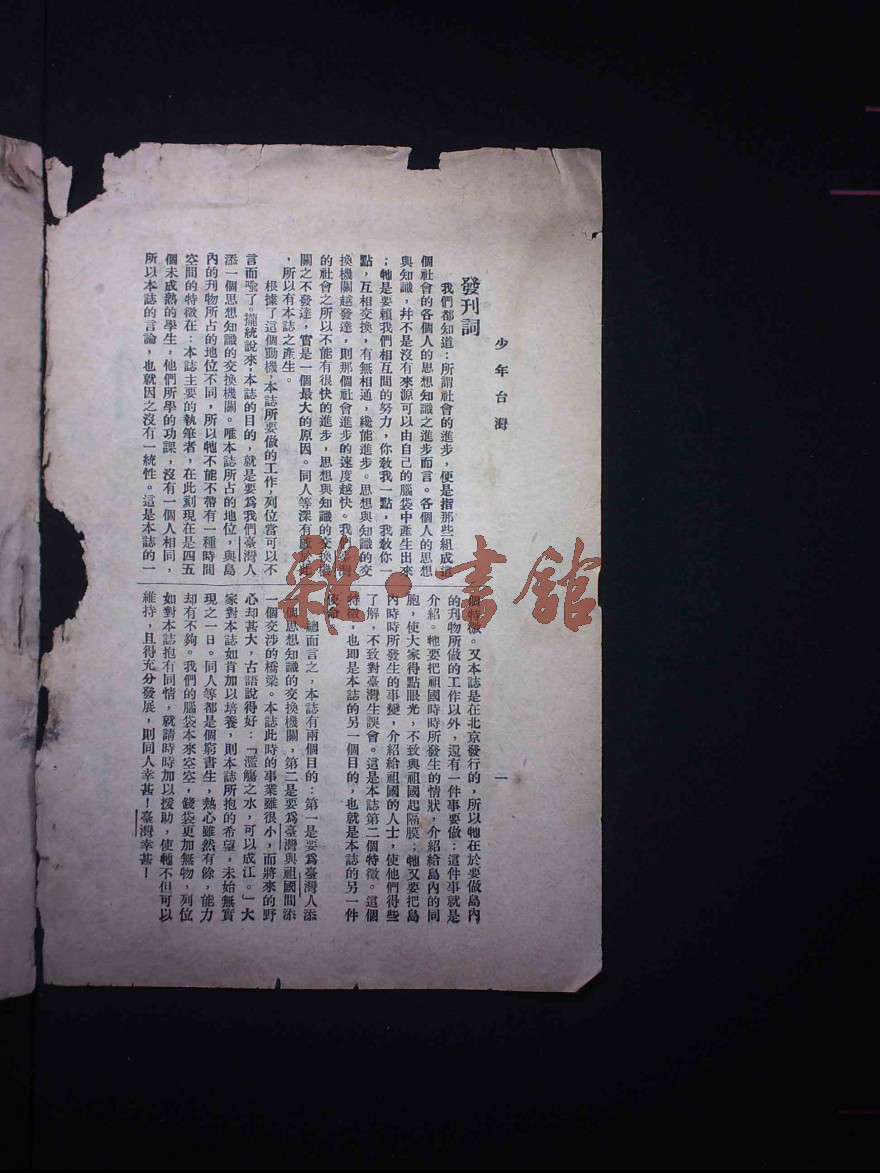 少年台灣
一
發刊詞
我們都知道：所謂社會的進步，便是指那些組成這
個社會的各個人的思想知識之進步而言。各個人的思想
與知識，幷不是沒有來源可以由自己的腦袋中產生出來
；牠是要賴我們相互間的努力，你敎我一點，我敎你一
點，互相交換，有無相通，纔能進步。思想與知識的交
換機關越發達，則那個社會進步的速度越快。我
的社會之所以不能有很快的進步，思想與知識的交換機
關之不發達，實是一個最大的原因。同人等深有感於此
，所以有本誌之產生。
根據了這個動機，本誌所要做的工作，列位當可以不
言而喩了。攏統說來，本誌的目的，就是要爲我們臺灣人
添一個思想知識的交換機關。唯本誌所占的地位，與島
內的刊物所占的地位不同，所以牠不能不帶有一種時間
空間的特徵在：本誌主要的執筆者，在此刻現在是四五
個未成熟的學生，他們所學的功課，沒有一個人相同，
所以本誌的言論，也就因之沒有一統性。這是本誌的一
個特徵。又本誌是在北京發行的，所以牠在於要做島內
的刊物所做的工作以外，還有一件事要做：這件事就是
介紹。牠要把祖國時時所發生的情狀，介紹給島內的同
胞，使大家得點眼光，不致與祖國起隔膜；牠又要把島
內時時所發生的事變，介紹給祖國的人士，使他們得些
了解，不致對臺灣生誤會。這是本誌第二個特徵。這個
特徵，也即是本誌的另一個目的，也就是本誌的另一件
使命。
總而言之，本誌有兩個目的：第一是要爲臺灣人添
一個思想知識的交換機關，第二是要爲臺灣與祖國間添
一個交涉的橋梁。本誌此時的事業雖很小，而將來的野
心却甚大，古語說得好：「濫觴之水，可以成江。」大
家對本誌如肯加以培養，則本誌所抱的希望，未始無實
現之一日。同人等都是個窮書生，熱心雖然有餘，能力
却有不夠。我們的腦袋本來空空，錢袋更加無物，列位
如對本誌抱有同情，就請時時加以援助，使牠不但可以
維持，且得充分發展，則同人幸甚！臺灣幸甚！
雜·書館